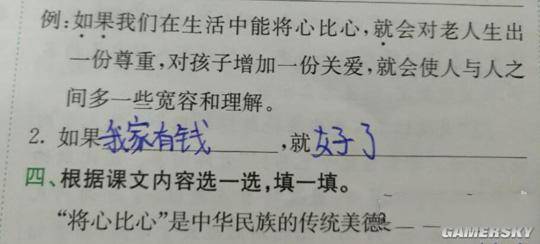 例:如果我们在生活中能将心比心,就会对老人生出
一份尊重,对孩子增加一份关爱,就会使人与人之
间多一些宽容和理解。
2. 如果我家有钱,就好了
四、根据课文内容选一选,填一填。
“将心比心”是中华民族的传统美德
GAMERSKY